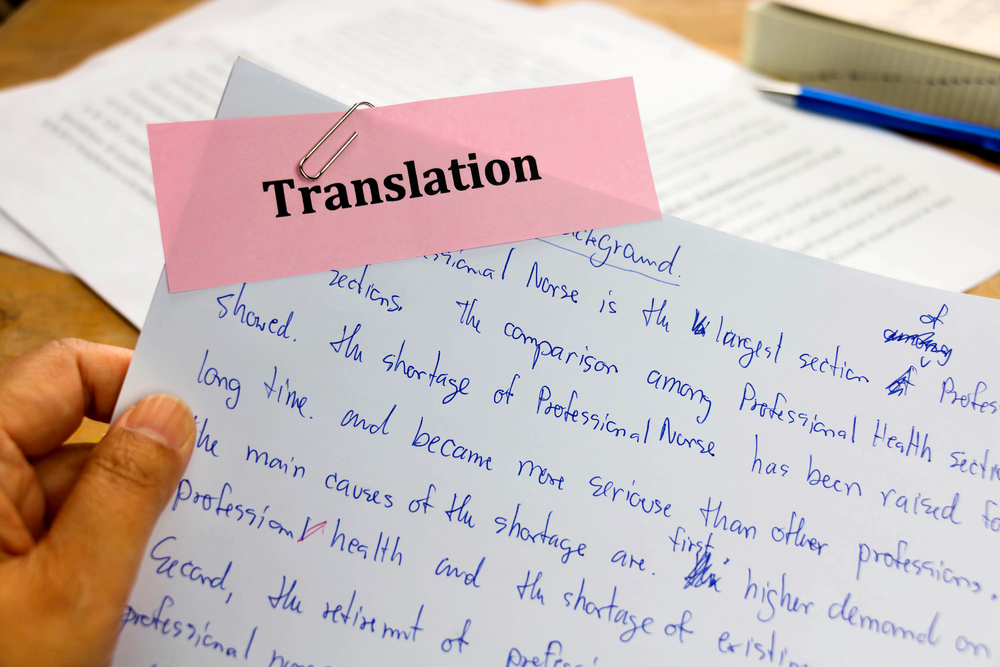 Translation
ckground.
ssional Norse is the largest section of Profes
sections. The comparison among Professional Health sectio
showed. the shortage of Professional Norse has been raised fo
long time. and became more seriouse than other professions.
the main causes of the shortage are. first, higher demand on
professional health and the shortage of existin
Second, the retiremnt of profes
professional